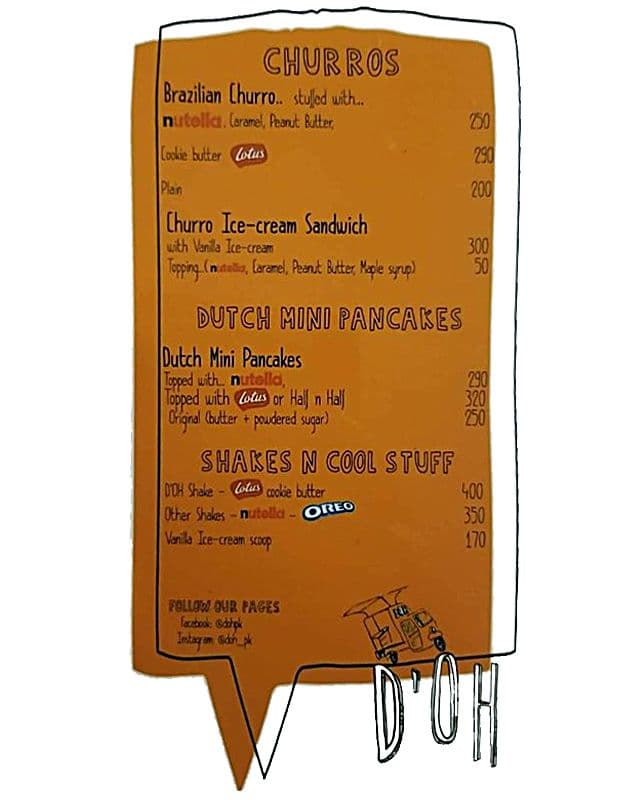 CHURROS
Brazilian Churro.. stuffed with...
nutella, Caramel, Peanut Butter, 250
Cookie butter Lotus 290
Plain 200
Churro Ice-cream Sandwich
with Vanilla Ice-cream 300
Topping..(nutella, Caramel, Peanut Butter, Maple syrup) 50
DUTCH MINI PANCAKES
Dutch Mini Pancakes
Topped with... nutella, 290
Topped with Lotus or Half n Half 320
Original (butter + powdered sugar) 250
SHAKES N COOL STUFF
D'OH Shake - Lotus cookie butter 400
Other Shakes - nutella - OREO 350
Vanilla Ice-cream scoop 170
FOLLOW OUR PAGES
Facebook: @dohpk
Instagram: @doh_pk
D'OH